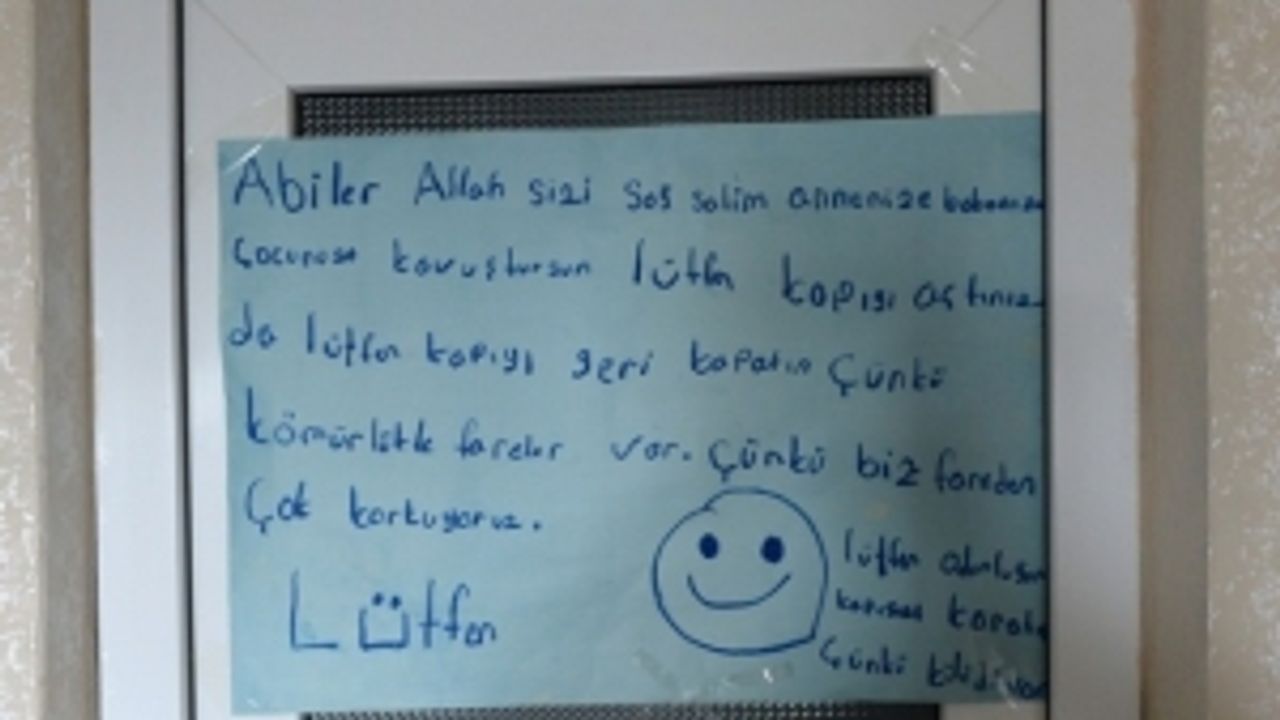 Abiler Allah sizi Sağ salim annenize
Çocunuza kavuştursun lütfen kapıyı açtınız
da lütfen kapıyı geri kapatın Çünkü
kömürlükte fareler var. Çünkü biz fareden
Çok korkuyoruz.
Lütfen
lütfen
Çünkü